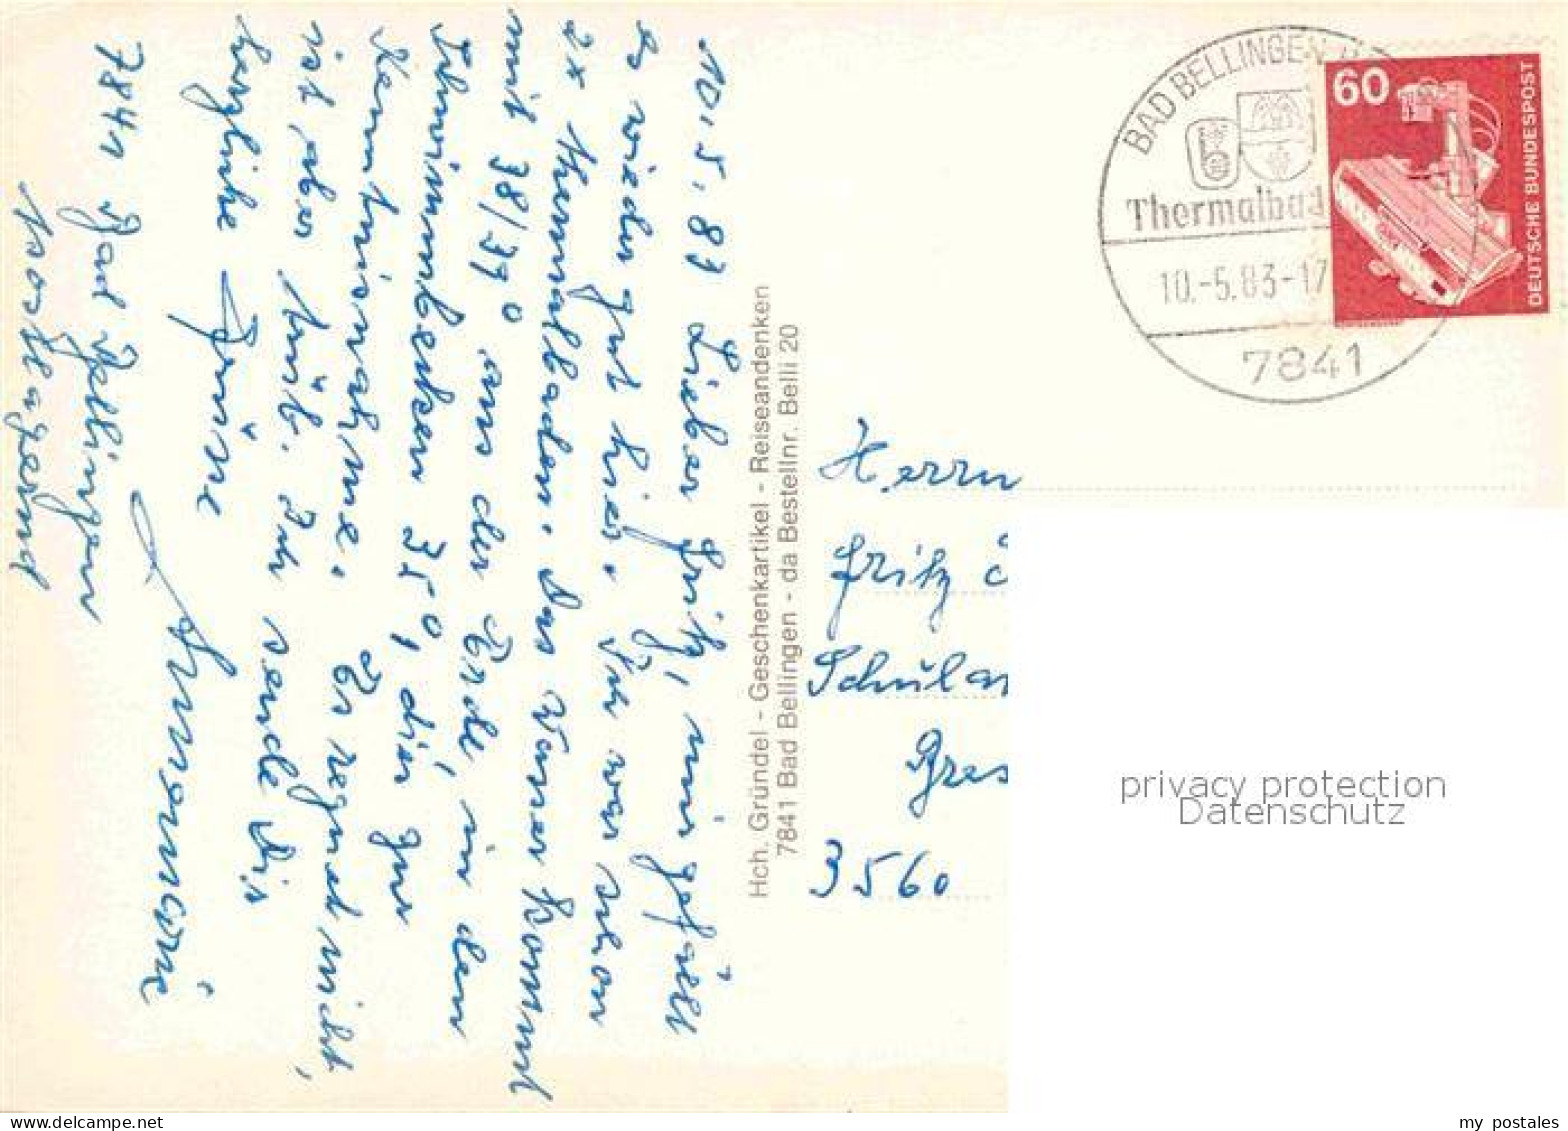 10.5.83 Lieber Fritz, mir gefällt
es wieder gut hier. Ich war schon
2x Thermalbaden. Das Wasser kommt
mit 38/39° aus der Erde, in den
Schwimmbecken 35°, die zur
ist aber trüb. Ich sende Dir
herzliche Grüsse
Annemarie
7841 Bad Bellingen
postlagernd
Hch. Gründel - Geschenkartikel - Reiseandenken
7841 Bad Bellingen - da Bestellnr. Belli 20
BAD BELLINGEN
Thermalbad
10.-5.83-17
7841
60
DEUTSCHE BUNDESPOST
Herrn
Fritz
Schul
Gres
3560
privacy protection
Datenschutz
my postales